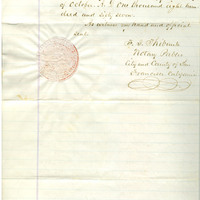 of October A. D. One thousand eight hun
dred and sixty seven.
In witness my hand and official
seal.
Notary Public
City and County of San
Francisco California